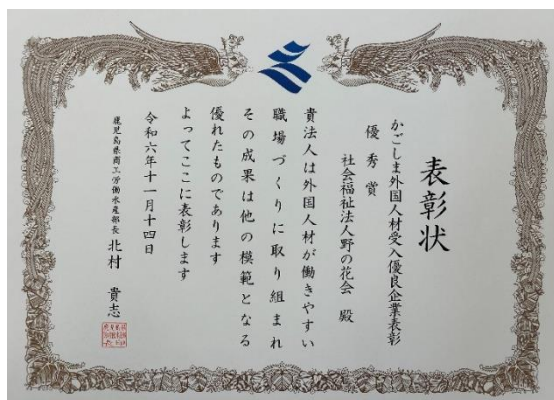 表彰状
かごしま外国人材受入優良企業表彰
優秀賞
社会福祉法人野の花会 殿
貴法人は外国人材が働きやすい
職場づくりに取り組まれ
その成果は他の模範となる
優れたものであります
よってここに表彰します
令和六年十一月十四日
鹿児島県商工労働水産部長 北村 貴志